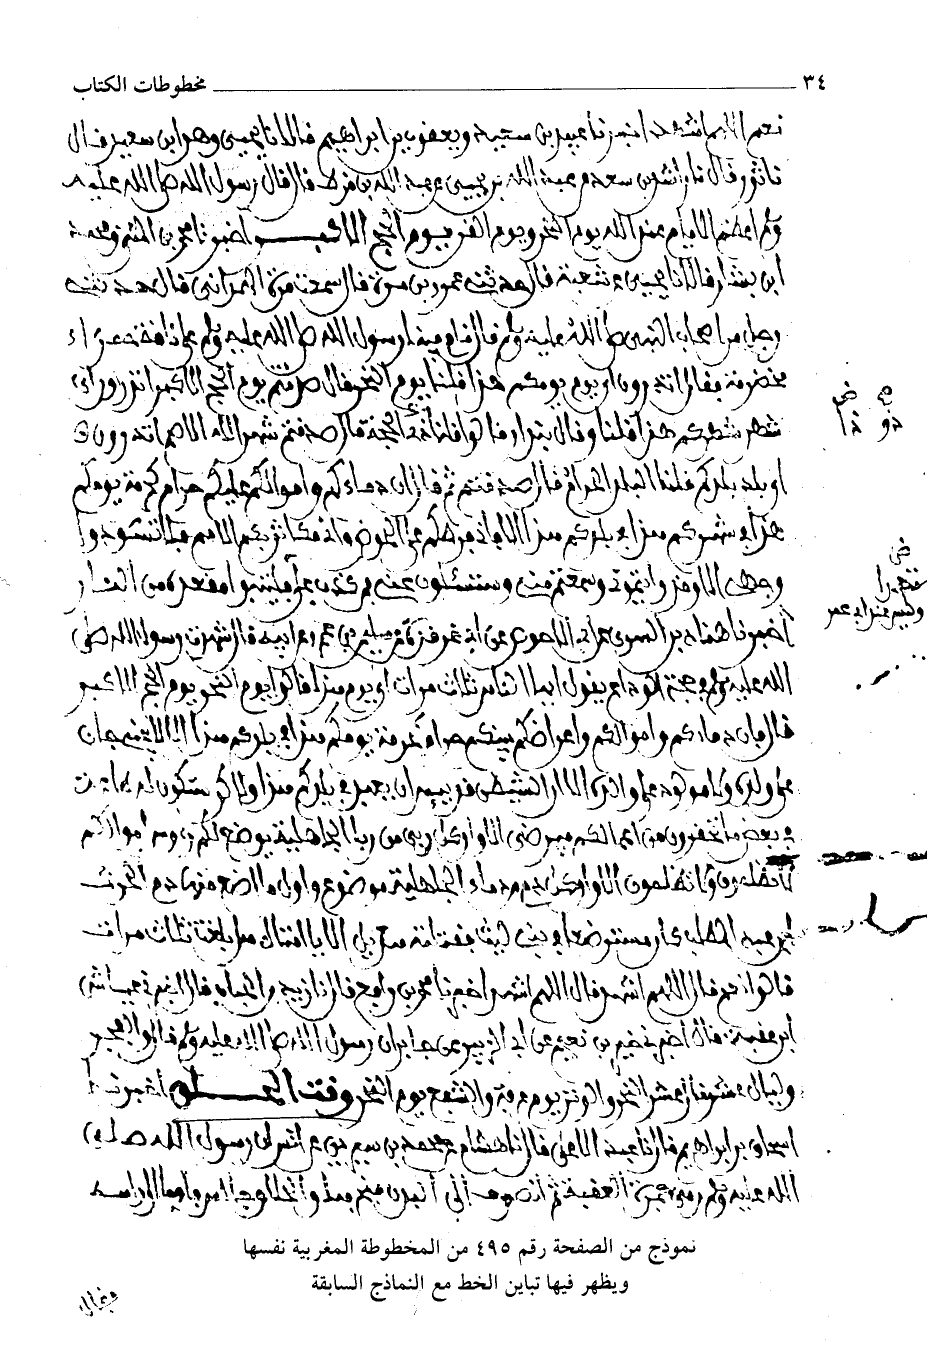 ٣٤ مخطوطات الكتاب
نعم اللهم اشهد اخبرنا عبيد بن سعيد ويعقوب بن ابراهيم قالا نا يحيى وهو ابن سعيد قال
نا ثور قال نا راشد بن سعد عن عبد الله بن يحيى عن عبد الله بن قرط قال قال رسول الله صلى الله عليه
وسلم اعظم الايام عند الله يوم النحر ويوم القر يوم الحج الاكبر اخبرنا محمد بن المثنى ومحمد
ابن بشار قالا نا يحيى عن شعبة قال حدثني عمرو بن مرة قال سمعت مرة الهمداني قال حدثني
رجل من اصحاب النبي صلى الله عليه وسلم قال قام فينا رسول الله صلى الله عليه وسلم على ناقة حمراء
مخضرمة فقال اتدرون اي يوم يومكم هذا قلنا يوم النحر قال صدقتم يوم الحج الاكبر اتدرون اي
شهر شهركم هذا قلنا وقال بندار قالوا قلنا ذو الحجة قال صدقتم شهر الله الاصم اتدرون
اي بلد بلدكم قلنا البلد الحرام قال صدقتم ثم قال ان دماءكم واموالكم عليكم حرام كحرمة يومكم
هذا في شهركم هذا في بلدكم هذا الا واني فرطكم على الحوض واني مكاثر بكم الامم فلا تسودوا
وجهي الا وقد رايتموني وسمعتم مني وستسئلون عني فمن كذب علي فليتبوا مقعده من النار
اخبرنا هناد بن السري عن ابي الاحوص عن ابن غرقدة عن سليمان بن عمرو عن ابيه قال شهدت رسول الله صلى
الله عليه وسلم في حجة الوداع يقول ايها الناس ثلاث مرات اي يوم هذا قالوا يوم النحر يوم الحج الاكبر
قال فان دماءكم واموالكم واعراضكم بينكم حرام كحرمة يومكم هذا في بلدكم هذا الا لا يجني جان
على ولده ولا مولود على والده الا ان الشيطن قد يئس ان يعبد في بلدكم هذا ولكن ستكون له طاعة
في بعض ما تحقرون من اعمالكم فيرضى الا وان كل ربى من ربا الجاهلية يوضع لكم روس اموالكم
لا تظلمون ولا تظلمون الا وان كل دم من دماء الجاهلية موضوع واول ما اضع منها دم الحرث
ابن عبد المطلب كان مسترضعا في بني ليث فقتلته هذيل الا يا امتاه هل بلغت ثلاث مرات
قالوا نعم قال اللهم اشهد قال اللهم اشهد اخبرنا محمد بن رافع قال نا زيد بن الحباب قال اخبرني عياش
ابن عقبة قال اخبرني خير بن نعيم عن ابي الزبير عن جابر ان رسول الله صلى الله عليه وسلم قال والفجر
وليال عشر قال عشر النحر والوتر يوم عرفة والشفع يوم النحر وقت الحلق اخبرنا
اسحاق بن ابراهيم قال نا عبد الاعلى قال نا هشام عن محمد بن سيرين عن انس ان رسول الله صلى
الله عليه وسلم رمى جمرة العقبة ثم انصرف الى البدن فنحرها والحلاق جالس
نموذج من الصفحة رقم ٤٩٥ من المخطوطة المغربية نفسها
ويظهر فيها تباين الخط مع النماذج السابقة
وقال